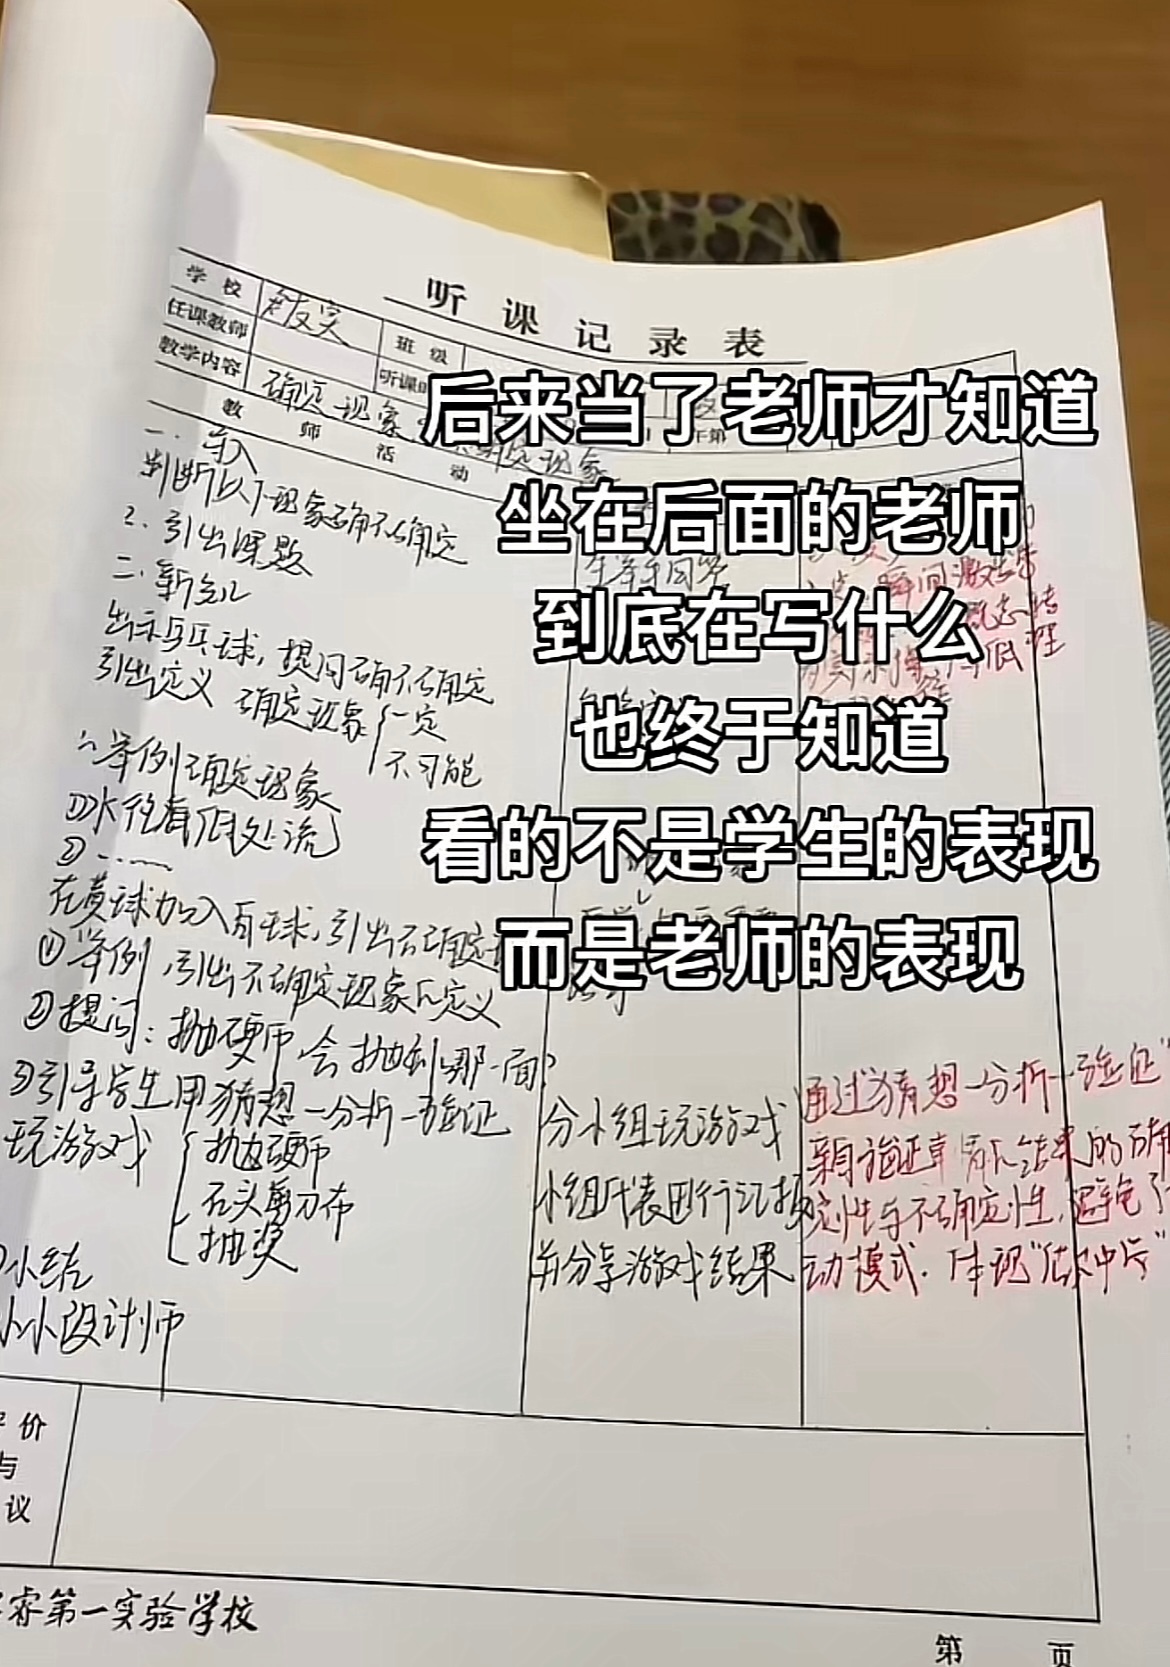 听课记录表
学校
班级
任课教师
教学内容
确定现象
教师活动
一.导入
判断以下现象确不确定
2.引出课题
二.新知
出示乒乓球,提问确不确定
引出定义 确定现象 一定
不可能
举例确定现象
①水往低处流
②……
在黄球加入白球,引出不确定
①举例,引出不确定现象定义
②提问:抛硬币,会抛到哪一面?
③引导学生用猜想—分析—验证
玩游戏 抛硬币
石头剪刀布
抽奖
小结
小小设计师
分小组玩游戏
小组代表进行汇报
并分享游戏结果
通过"猜想—分析—验证"
亲自验证事情结果的确
定性与不确定性,避免了
动模式.体现"做中学"
后来当了老师才知道
坐在后面的老师
到底在写什么
也终于知道
看的不是学生的表现
而是老师的表现
价
与
议
睿第一实验学校
第 页